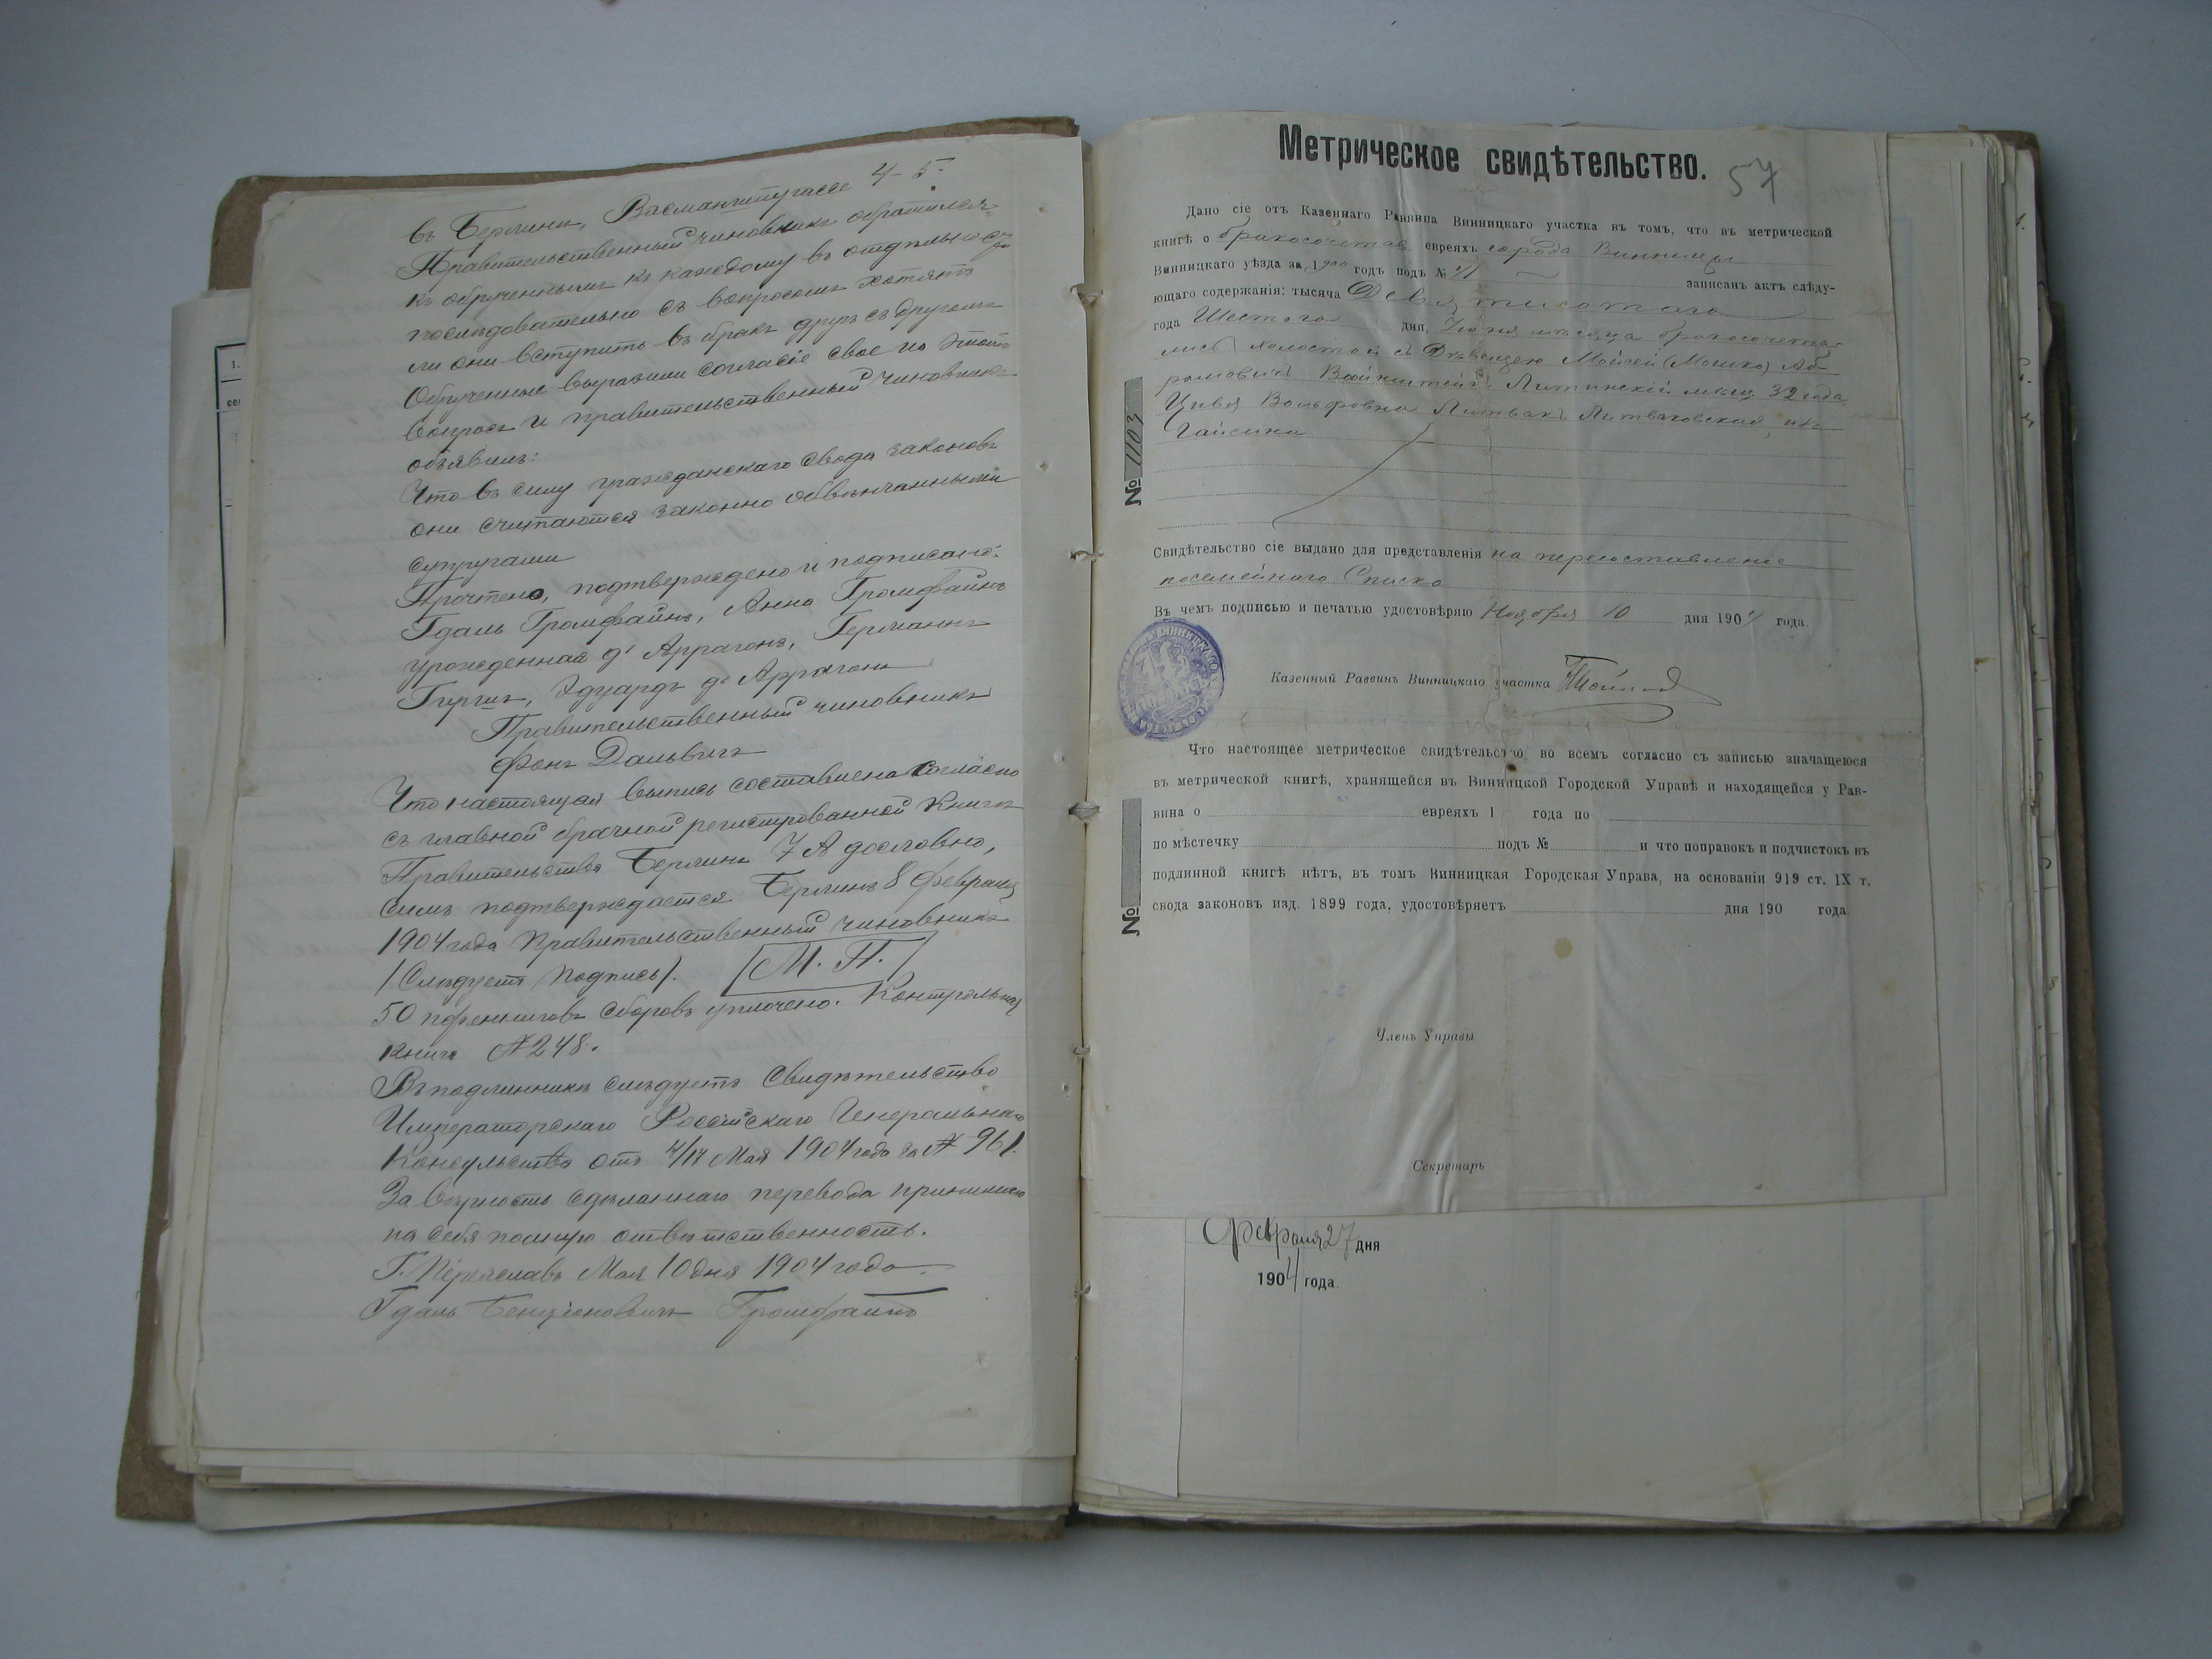 въ Берлинѣ, Васманштрассе 4-5.
Правительственный чиновникъ обратился
къ обрученнымъ къ каждому въ отдѣльности
послѣдовательно съ вопросомъ хотятъ
ли они вступить въ бракъ другъ съ другомъ
Обрученные выразили согласіе свое на этотъ
вопросъ и правительственный чиновникъ
объявилъ:
Что въ силу гражданскаго свода законовъ
они считаются законно обвѣнчанными
супругами
Прочтено, подтверждено и подписано:
Гдаль Громфайнъ, Анна Громфайнъ
урожденная д' Аррагонъ, Германъ
Гиргъ, Эдуардъ де Аррагонъ
Правительственный чиновникъ
фонъ Дальвигъ
Что настоящая выпись составлена согласно
съ главной брачной регистрованной книгѣ
Правительства Берлинъ 7 А дословно,
симъ подтверждается Берлинъ 8 февраля
1904 года Правительственный чиновникъ
/Слѣдуетъ подпись/. М. П.
50 пфениговъ сборовъ уплочено. Контрольная
книга № 248.
Въ подлинникѣ слѣдуетъ Свидѣтельство
Императорскаго Россійскаго Генеральнаго
Консульства отъ 4/17 Мая 1904 года за № 961.
За вѣрность сдѣланнаго перевода принимаю
на себя полную отвѣтственность.
Г. Переяславъ Мая 10 дня 1904 года.
Гдаль Бенціоновичъ Громфайнъ
Метрическое свидѣтельство. 57
Дано сіе отъ Казеннаго Раввина Винницкаго участка въ томъ, что въ метрической
книгѣ о бракосочетав. евреяхъ города Винницы
Винницкаго уѣзда за 1900 годъ подъ № 71 записанъ актъ слѣду-
ющаго содержанія: тысяча Девятисотаго
года Шестого дня, Іюня мѣсяца бракосочета-
лись холостой съ Дѣвицею Мойсей (Мошко) Аб
рамовичъ Вайнштейнъ Литинскій мѣщ 32 года
Цивья Вольфовна Литвакъ Литваковская, изъ
Гайсина
№ 1103
Свидѣтельство сіе выдано для представленія на пересоставленіе
посемейнаго Списка
Въ чемъ подписью и печатью удостовѣряю Ноября 10 дня 1904 года.
Казенный Раввинъ Винницкаго участка
Что настоящее метрическое свидѣтельство во всемъ согласно съ записью значащеюся
въ метрической книгѣ, хранящейся въ Винницкой Городской Управѣ и находящейся у Рав-
вина о евреяхъ 1 года по
по мѣстечку подъ № и что поправокъ и подчистокъ въ
подлинной книгѣ нѣтъ, въ томъ Винницкая Городская Управа, на основаніи 919 ст. IX т.
свода законовъ изд. 1899 года, удостовѣряетъ дня 190 года.
№
Членъ Управы
Секретарь
Февраля 27 дня
1904 года.